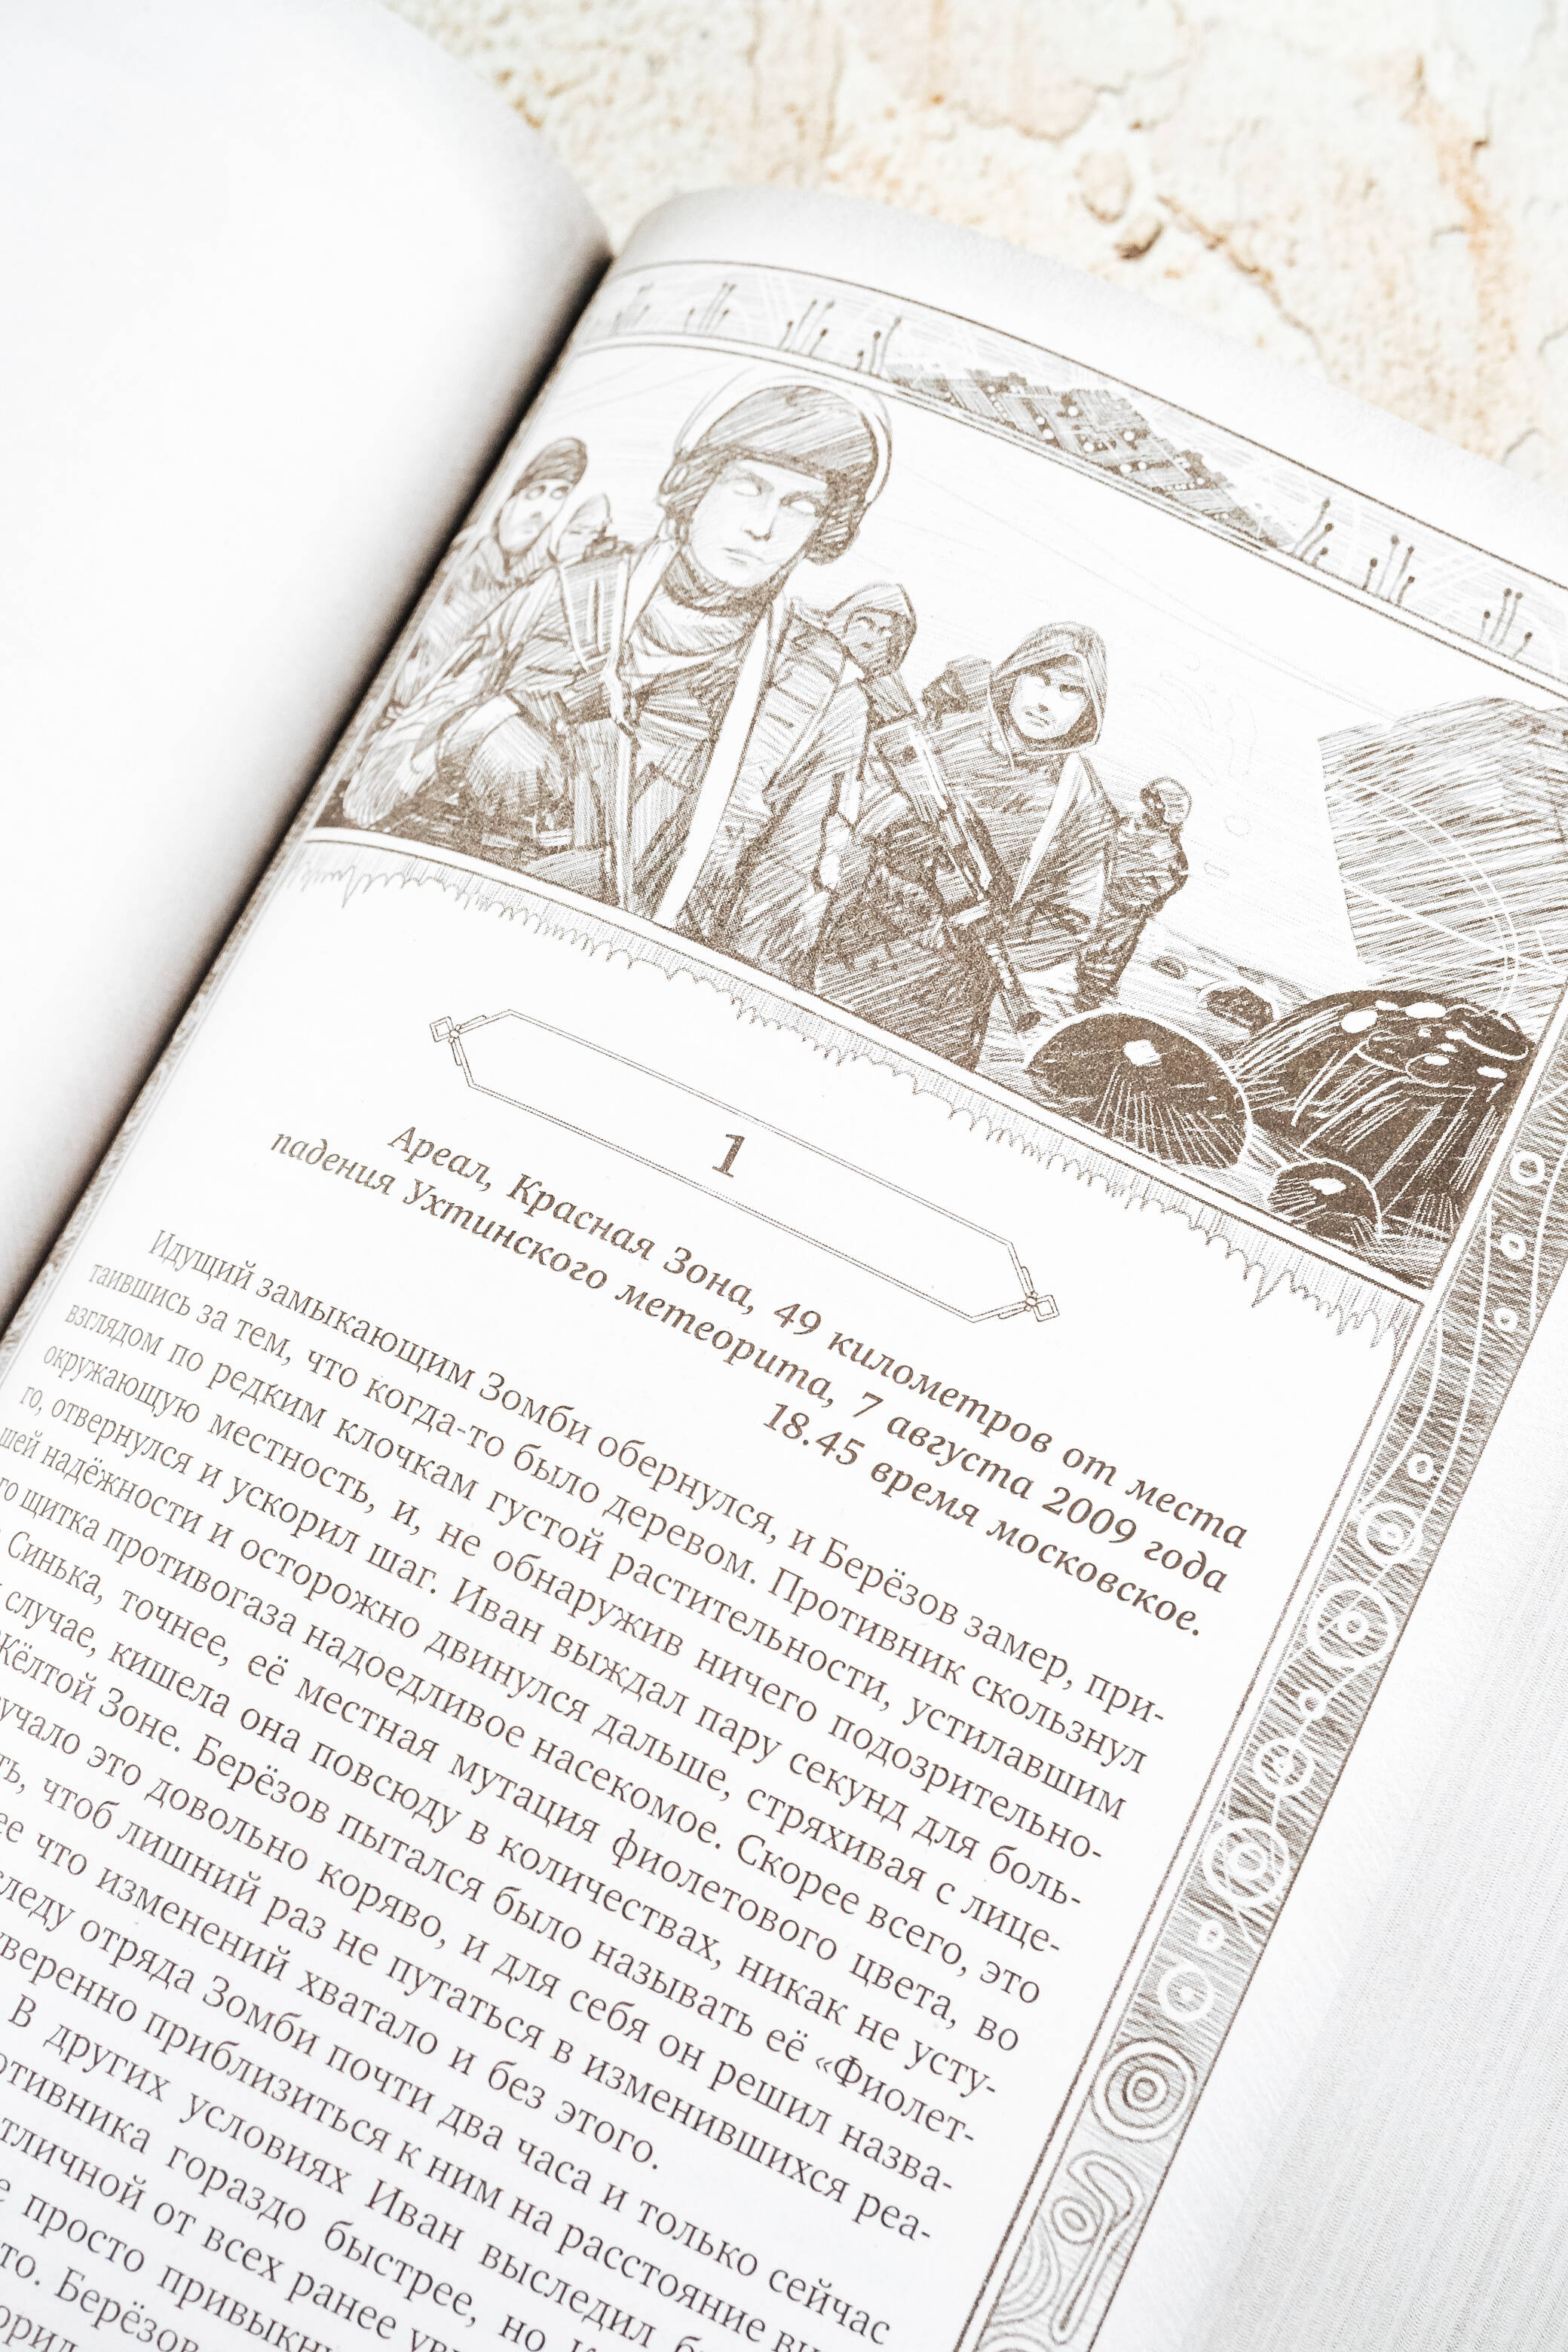 1
Ареал, Красная Зона, 49 километров от места
падения Ухтинского метеорита, 7 августа 2009 года
18.45 время московское.
Идущий замыкающим Зомби обернулся, и Берёзов замер, при-
таившись за тем, что когда-то было деревом. Противник скользнул
взглядом по редким клочкам густой растительности, устилавшим
окружающую местность, и, не обнаружив ничего подозрительно-
го, отвернулся и ускорил шаг. Иван выждал пару секунд для боль-
шей надёжности и осторожно двинулся дальше, стряхивая с лице-
го щитка противогаза надоедливое насекомое. Скорее всего, это
Синька, точнее, её местная мутация фиолетового цвета, во
случае, кишела она повсюду в количествах, никак не усту-
Жёлтой Зоне. Берёзов пытался было называть её «Фиолет-
учало это довольно коряво, и для себя он решил назва-
ть, чтоб лишний раз не путаться в изменившихся реа-
ее что изменений хватало и без этого.
следу отряда Зомби почти два часа и только сейчас
уверенно приблизиться к ним на расстояние
В других условиях Иван выследил
отивника гораздо быстрее, но
тличной от всех ранее
е просто
то. Берёзов